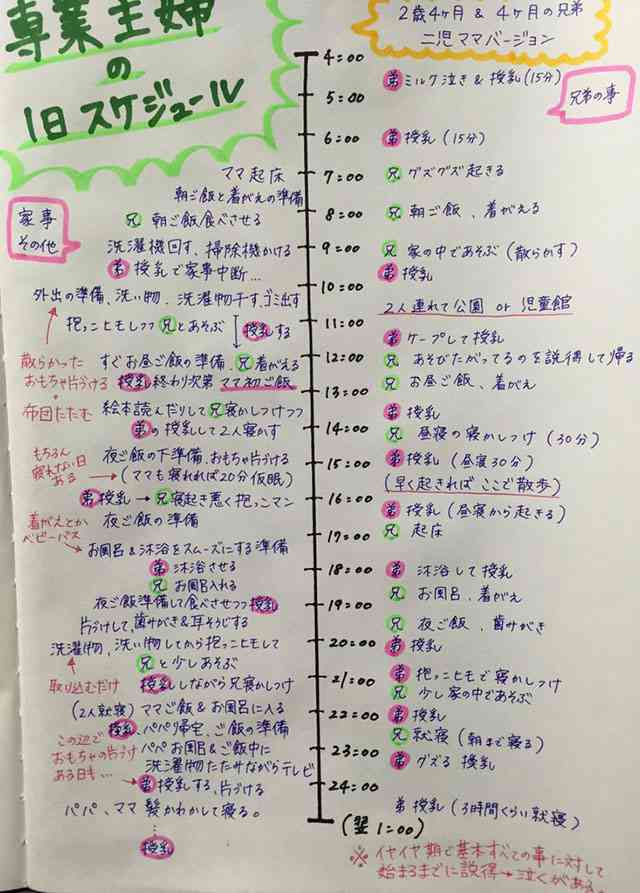 専業主婦
の
1日スケジュール
2歳4ヶ月 & 4ヶ月の兄弟
二児ママバージョン
兄弟の事
家事
その他
4:00
弟 ミルク泣き & 授乳 (15分)
5:00
6:00
弟 授乳 (15分)
ママ起床
7:00
兄 グズグズ起きる
朝ご飯と着がえの準備
兄 朝ご飯食べさせる
8:00
兄 朝ご飯、着がえる
洗濯機回す、掃除機かける
9:00
兄 家の中であそぶ (散らかす)
弟 授乳で家事中断…
弟 授乳
10:00
外出の準備、洗い物、洗濯物干す、ゴミ出す
2人連れて公園 or 児童館
抱っこヒモしつつ兄とあそぶ
授乳する
11:00
弟 ケープして授乳
散らかった
おもちゃ片づける
すぐお昼ご飯の準備、兄着がえる
12:00
兄 あそびたがってるのを説得して帰る
授乳終わり次第 ママ初ご飯
兄 お昼ご飯、着がえ
13:00
布団たたむ
絵本読んだりして兄寝かしつけつつ
弟 授乳
弟の授乳して2人寝かす
14:00
兄 昼寝の寝かしつけ (30分)
もちろん
寝れない日
ある
夜ご飯の下準備、おもちゃ片づける
15:00
弟 授乳 (昼寝30分)
(ママも寝れれば20分仮眠)
(早く起きればここで散歩)
弟授乳 → 兄寝起き悪く抱っこマン
16:00
弟 授乳 (昼寝から起きる)
着がえとか
ベビーバス
夜ご飯の準備
兄 起床
17:00
お風呂&沐浴をスムーズにする準備
弟 沐浴させる
18:00
弟 沐浴して授乳
兄 お風呂入れる
兄 お風呂、着がえ
夜ご飯準備して食べさせつつ授乳
19:00
片づけして、歯みがき&耳そうじする
兄 夜ご飯、歯みがき
洗濯物、洗い物してから抱っこヒモして
20:00
弟 授乳
兄と少しあそぶ
弟 抱っこヒモで寝かしつけ
取り込むだけ
授乳しながら兄寝かしつけ
21:00
兄 少し家の中であそぶ
(2人就寝) ママご飯&お風呂に入る
22:00
弟 授乳
授乳、パパ帰宅、ご飯の準備
兄 就寝 (朝まで寝る)
この辺で
おもちゃの片づけ
ある日も…
パパお風呂&ご飯中に
23:00
弟 グズる 授乳
洗濯物たたみながらテレビ
弟 授乳する、片づける
24:00
パパ、ママ 髪かわかして寝る。
弟 授乳 (3時間くらい就寝)
(翌1:00)
授乳
※ イヤイヤ期で基本すべての事に対して
始まるまでに説得→泣くがある。